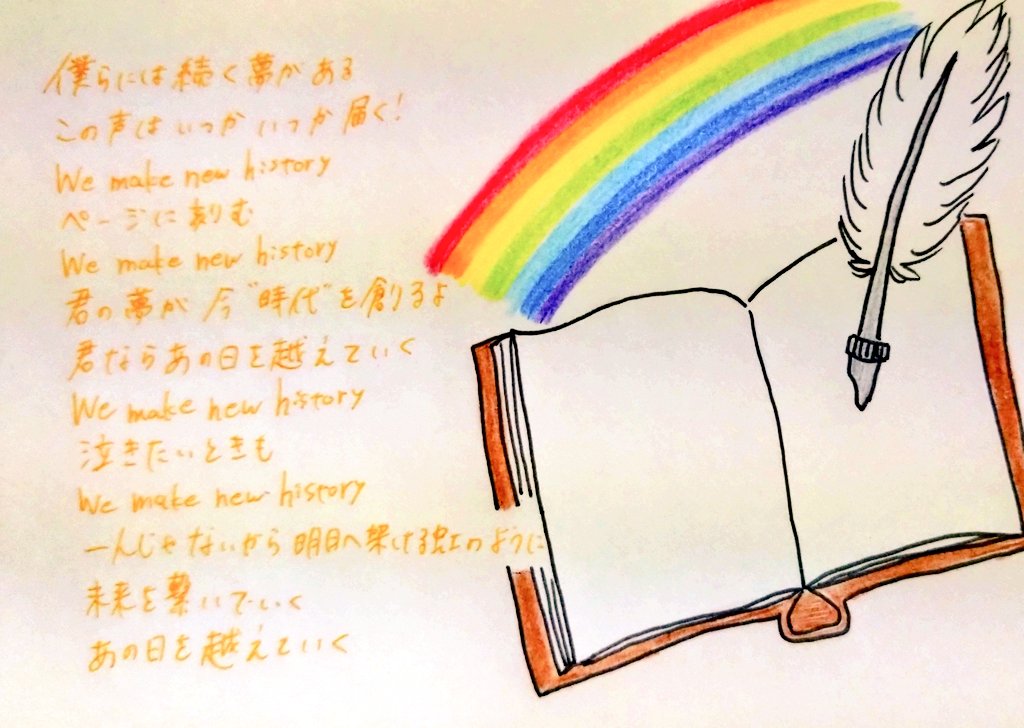 僕らには続く夢がある
この声はいつかいつか届く!
We make new history
ページに刻む
We make new history
君の夢が今"時代"を創るよ
君ならあの日を越えていく
We make new history
泣きたいときも
We make new history
一人じゃないから明日へ架ける虹のように
未来を繋いでいく
あの日を越えていく